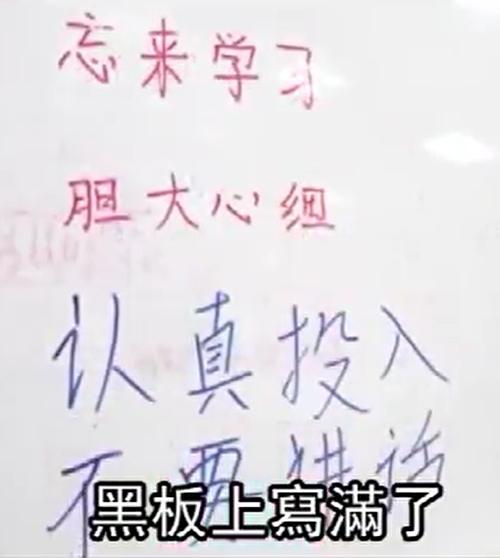 忘来学习
胆大心细
认真投入
不要讲话
黑板上寫滿了